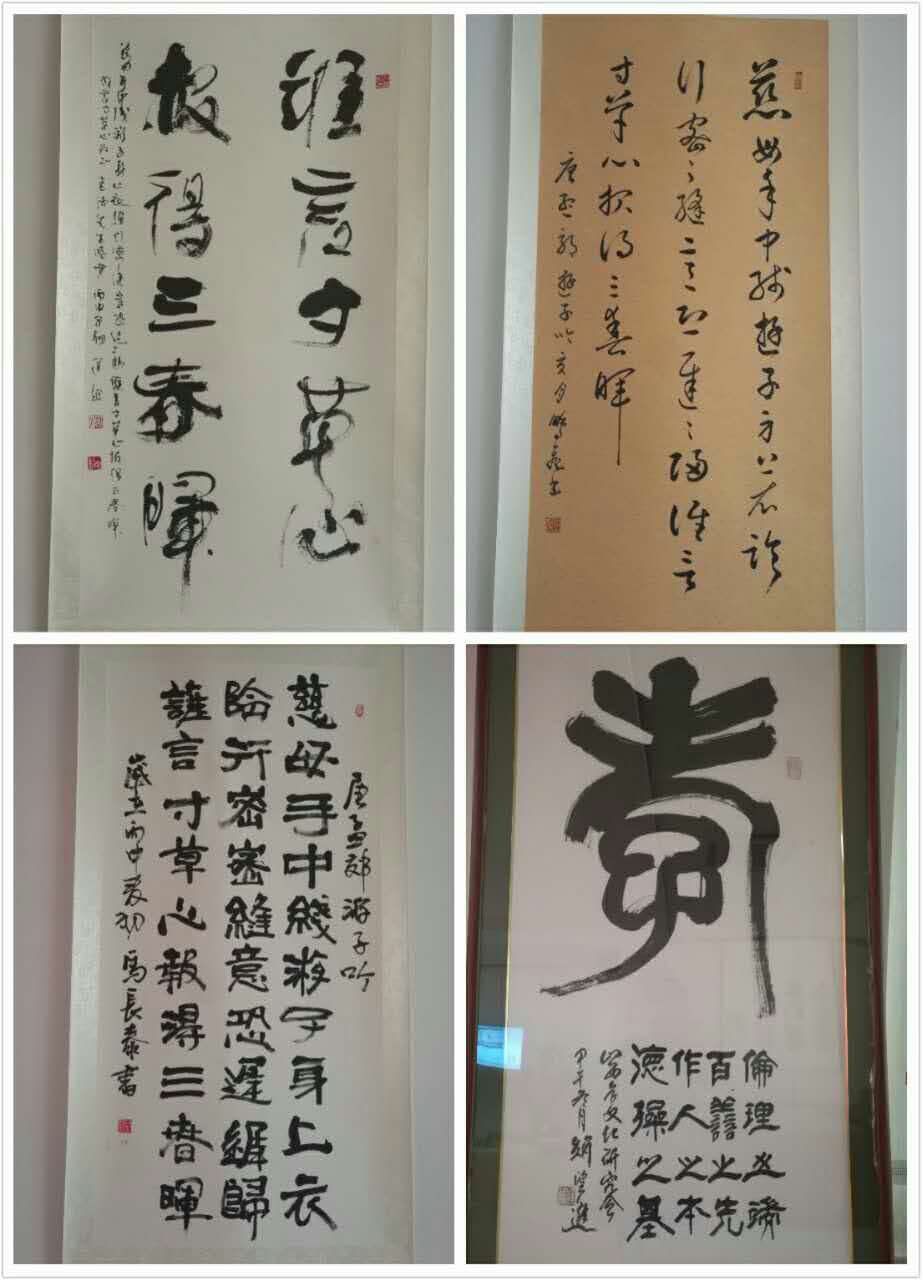 谁言寸草心
报得三春暉
慈母手中线游子身上衣临
行密密缝意恐迟迟归谁言
寸草心报得三春暉
唐孟郊游子吟亥月鹏飞书
唐孟郊游子吟
慈母手中綫游子身上衣
臨行密密縫意恐遲遲歸
誰言寸草心報得三春暉
歲在丙申夏初馬長泰書
孝
倫理之端
百善之先
作人之本
德操之基
文化研究会
甲午冬月趙望進